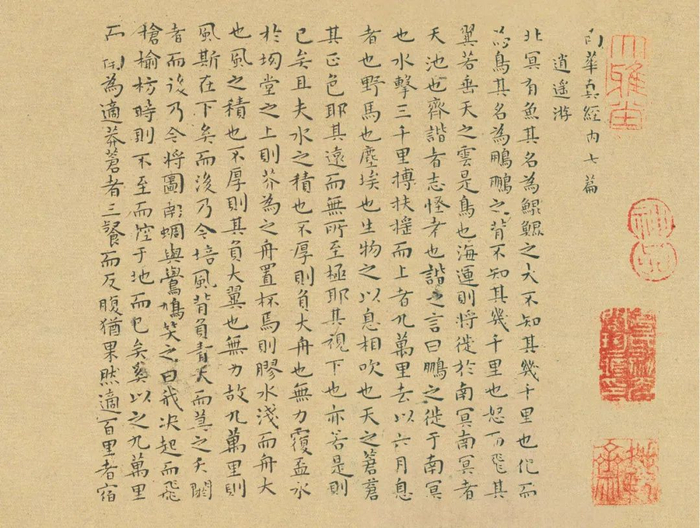 南華真經內七篇
逍遙游
北冥有魚其名為鯤鯤之大不知其幾千里也化而
為鳥其名為鵬鵬之背不知其幾千里也怒而飛其
翼若垂天之雲是鳥也海運則將徙於南冥南冥者
天池也齊諧者志怪者也諧之言曰鵬之徙于南冥
也水擊三千里摶扶搖而上者九萬里去以六月息
者也野馬也塵埃也生物之以息相吹也天之蒼蒼
其正色耶其遠而無所至極耶其視下也亦若是則
已矣且夫水之積也不厚則負大舟也無力覆盃水
於坳堂之上則芥為之舟置杯焉則膠水淺而舟大
也風之積也不厚則其負大翼也無力故九萬里則
風斯在下矣而後乃今培風背負青天而莫之夭閼
者而後乃今將圖南蜩與鷽鳩笑之曰我決起而飛
槍榆枋時則不至而控于地而已矣奚以之九萬里
而南為適莽蒼者三餐而反腹猶果然適百里者宿
神品